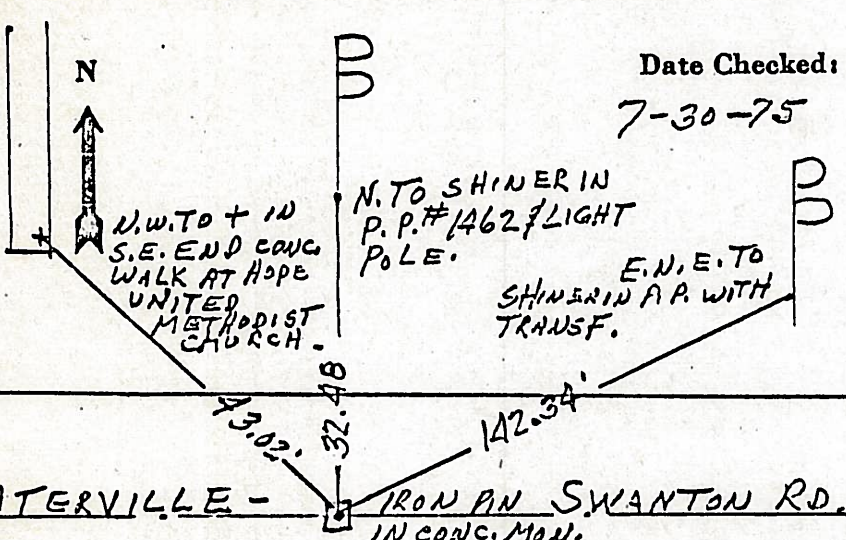 N
Date Checked:
7-30-75
N.W. TO + IN
S.E. END CONC.
WALK AT HOPE
UNITED
METHODIST
CHURCH.
N. TO SHINER IN
P.P.#1462 & LIGHT
POLE.
E.N.E. TO
SHINER IN P.P. WITH
TRANSF.
32.48
142.34'
ATERVILLE - IRON PIN SWANTON RD.
IN CONC. MON.